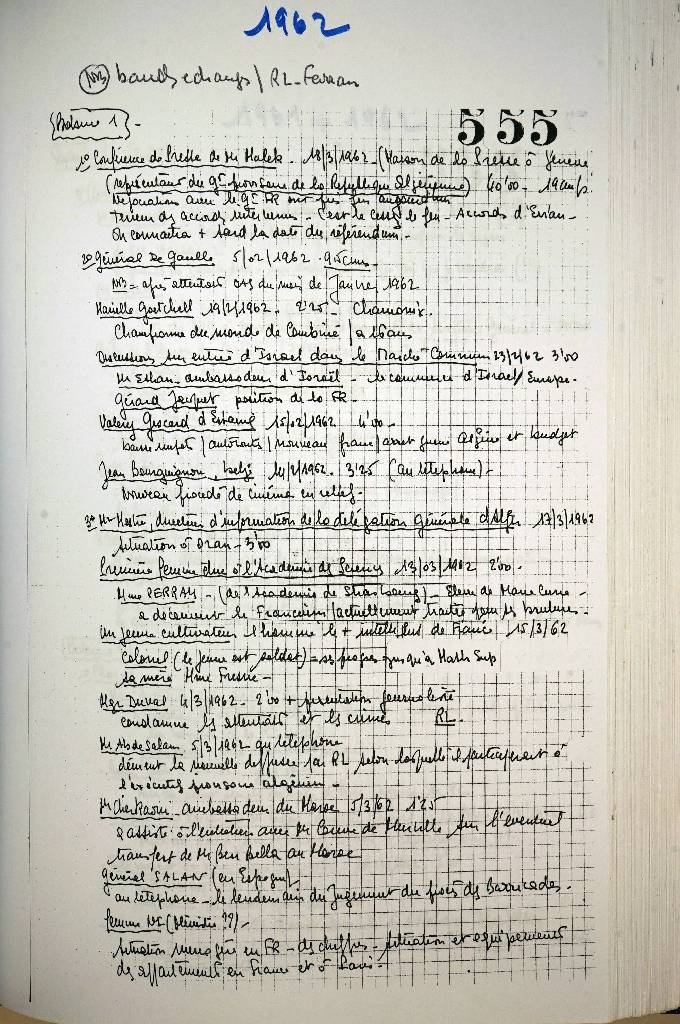 1962
NB bande echange / RL - Ferran
Bobine 1 -
555
1° Conférence de Presse de Mr Malek - 18/3/1962 - (Maison de la Presse à Genève
(représentant du Gt provisoire de la République Algérienne) 40'00 - 19 cm/s.
Négociations avec le Gt FR ont pris fin aujourd'hui
Teneur des accords intervenus - C'est le cessez le feu - Accords d'Evian -
On connaitra + tard la date du référendum -
2° Général De Gaulle 5/02/1962 - 9,5 cm/s -
NB = après attentats OAS du mois de Janvier 1962
Marielle Goitchell 19/2/1962 - 2'25 - Chamonix.
Championne du monde de Combiné / a 16 ans
Discussions sur entrée d'Israel dans le Marché Commun 23/2/62 3'00
Mr Ethan - ambassadeur d'Israël - le commerce d'Israel / Europe -
Gérard Jacquet position de la FR -
Valéry Giscard d'Estaing 15/02/1962 4'00 -
baisse impots / autoroutes / nouveau franc / arret guerre Algérie et budget
Jean Bourguignon, belge 14/2/1962 - 3'25 (au téléphone) -
Nouveau procédé de cinéma en relief -
3° Mr Mestre, directeur d'information de la délégation générale d'Alger 17/3/1962
situation à Oran - 3'00
Première femme élue à l'Académie des Sciences 13/03/1962 2'00 -
Mme PERRAY - (de l'Académie de Strasbourg) - Eleve de Marie Curie -
a découvert le Francium / actuellement traitée pour ses brulures -
Un jeune cultivateur l'homme le + intelligent de France 15/3/62
Colonel (le jeune est soldat) = ses progres jusqu'à Math Sup
sa mère Mme Fresne -
Mgr Duval 4/3/1962 - 2'00 + présentation journaliste
condamne les attentats et les crimes RL.
Mr Abdesalam 5/3/1962 au téléphone
dément la nouvelle diffusée par RL selon laquelle il participerait à
l'exécutif provisoire algérien -
Mr Cherkaoui - ambassadeur du Maroc 5/3/62 1'25
a assisté à l'entretien avec Mr Couve de Murville sur l'éventuel
transfert de Mr Ben Bella au Maroc
Général SALAN (en Espagne)
au téléphone - le lendemain du Jugement du procès des Barricades -
femme NI (Ministre ??) -
situation ménagère en FR - des chiffres - situation et equipements
des appartements en France et à Paris -